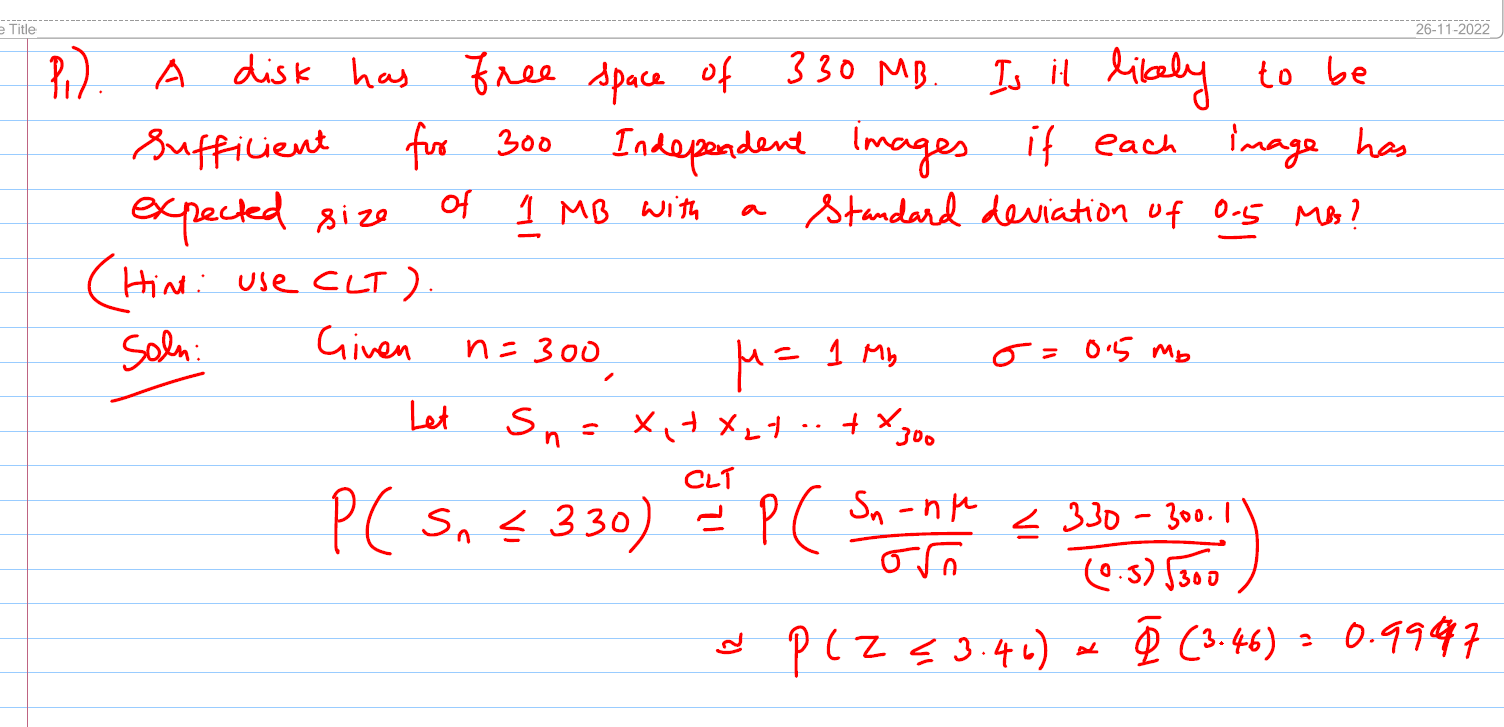 e Title
26-11-2022
P₁). A disk has free space of 330 MB. Is it likely to be
sufficient for 300 Independent images if each image has
expected size of 1 MB with a standard deviation of 0.5 MB?
(Hint: use CLT).
Soln: Given n = 300, μ = 1 Mb σ = 0.5 Mb
Let Sₙ = X₁ + X₂ + .. + X₃₀₀
P( Sₙ ≤ 330) CLT ≃ P( (Sₙ - nμ)/(σ√n) ≤ (330 - 300.1)/((0.5)√300) )
≃ P(Z ≤ 3.46) ≃ Φ(3.46) = 0.9997